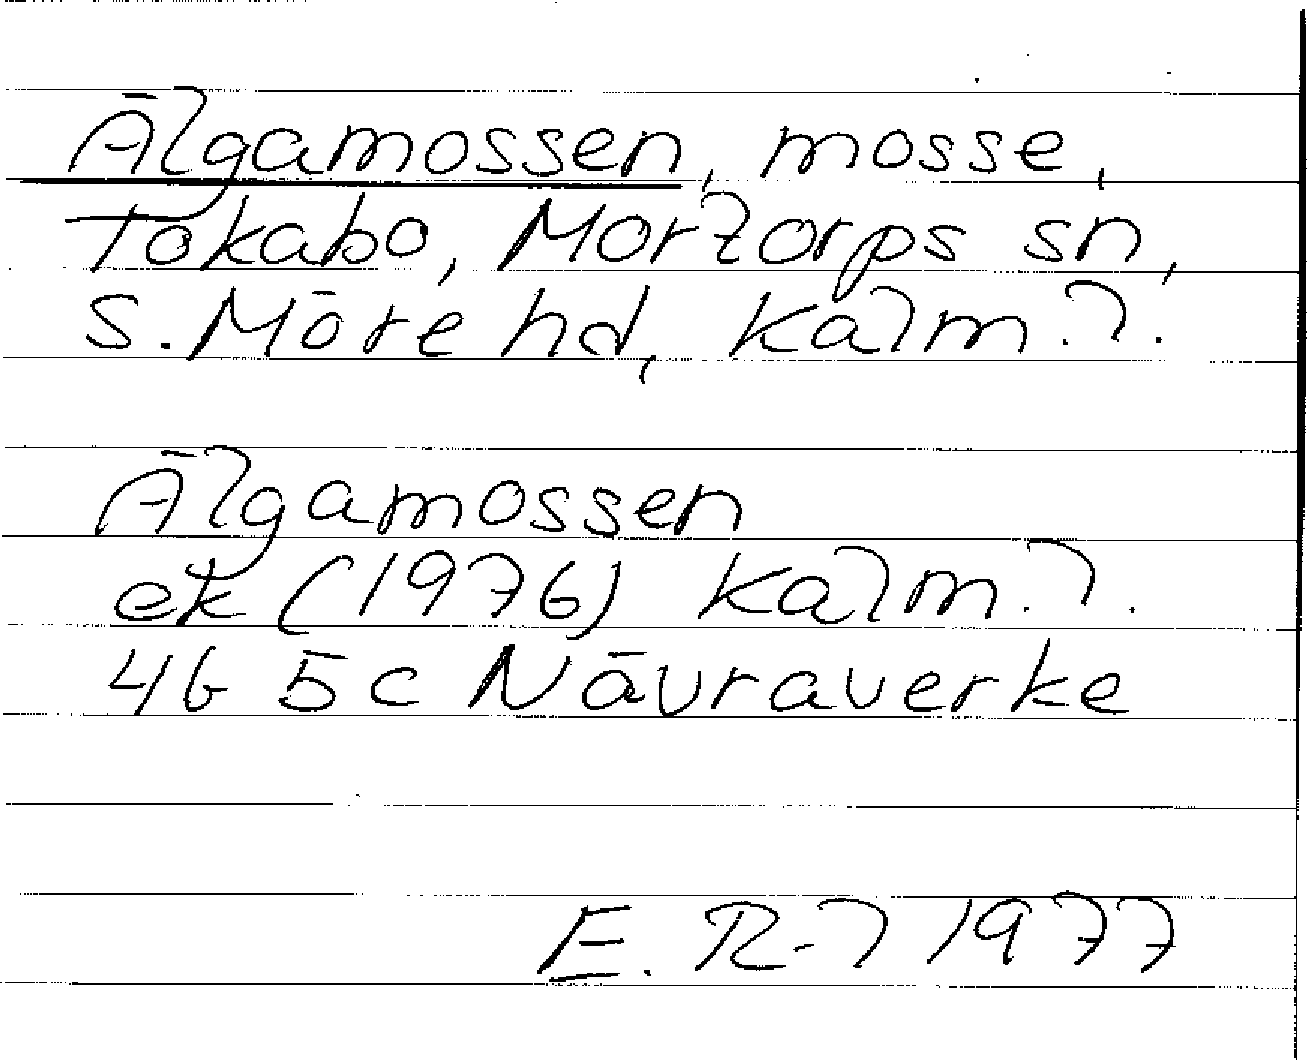 Älgamossen, mosse,
Tokabo, Mortorps sn,
S. Möre hd, Kalm. l.
Älgamossen
ek (1976) Kalm. l.
4G 5c Nävraverke
E. R-l 1977